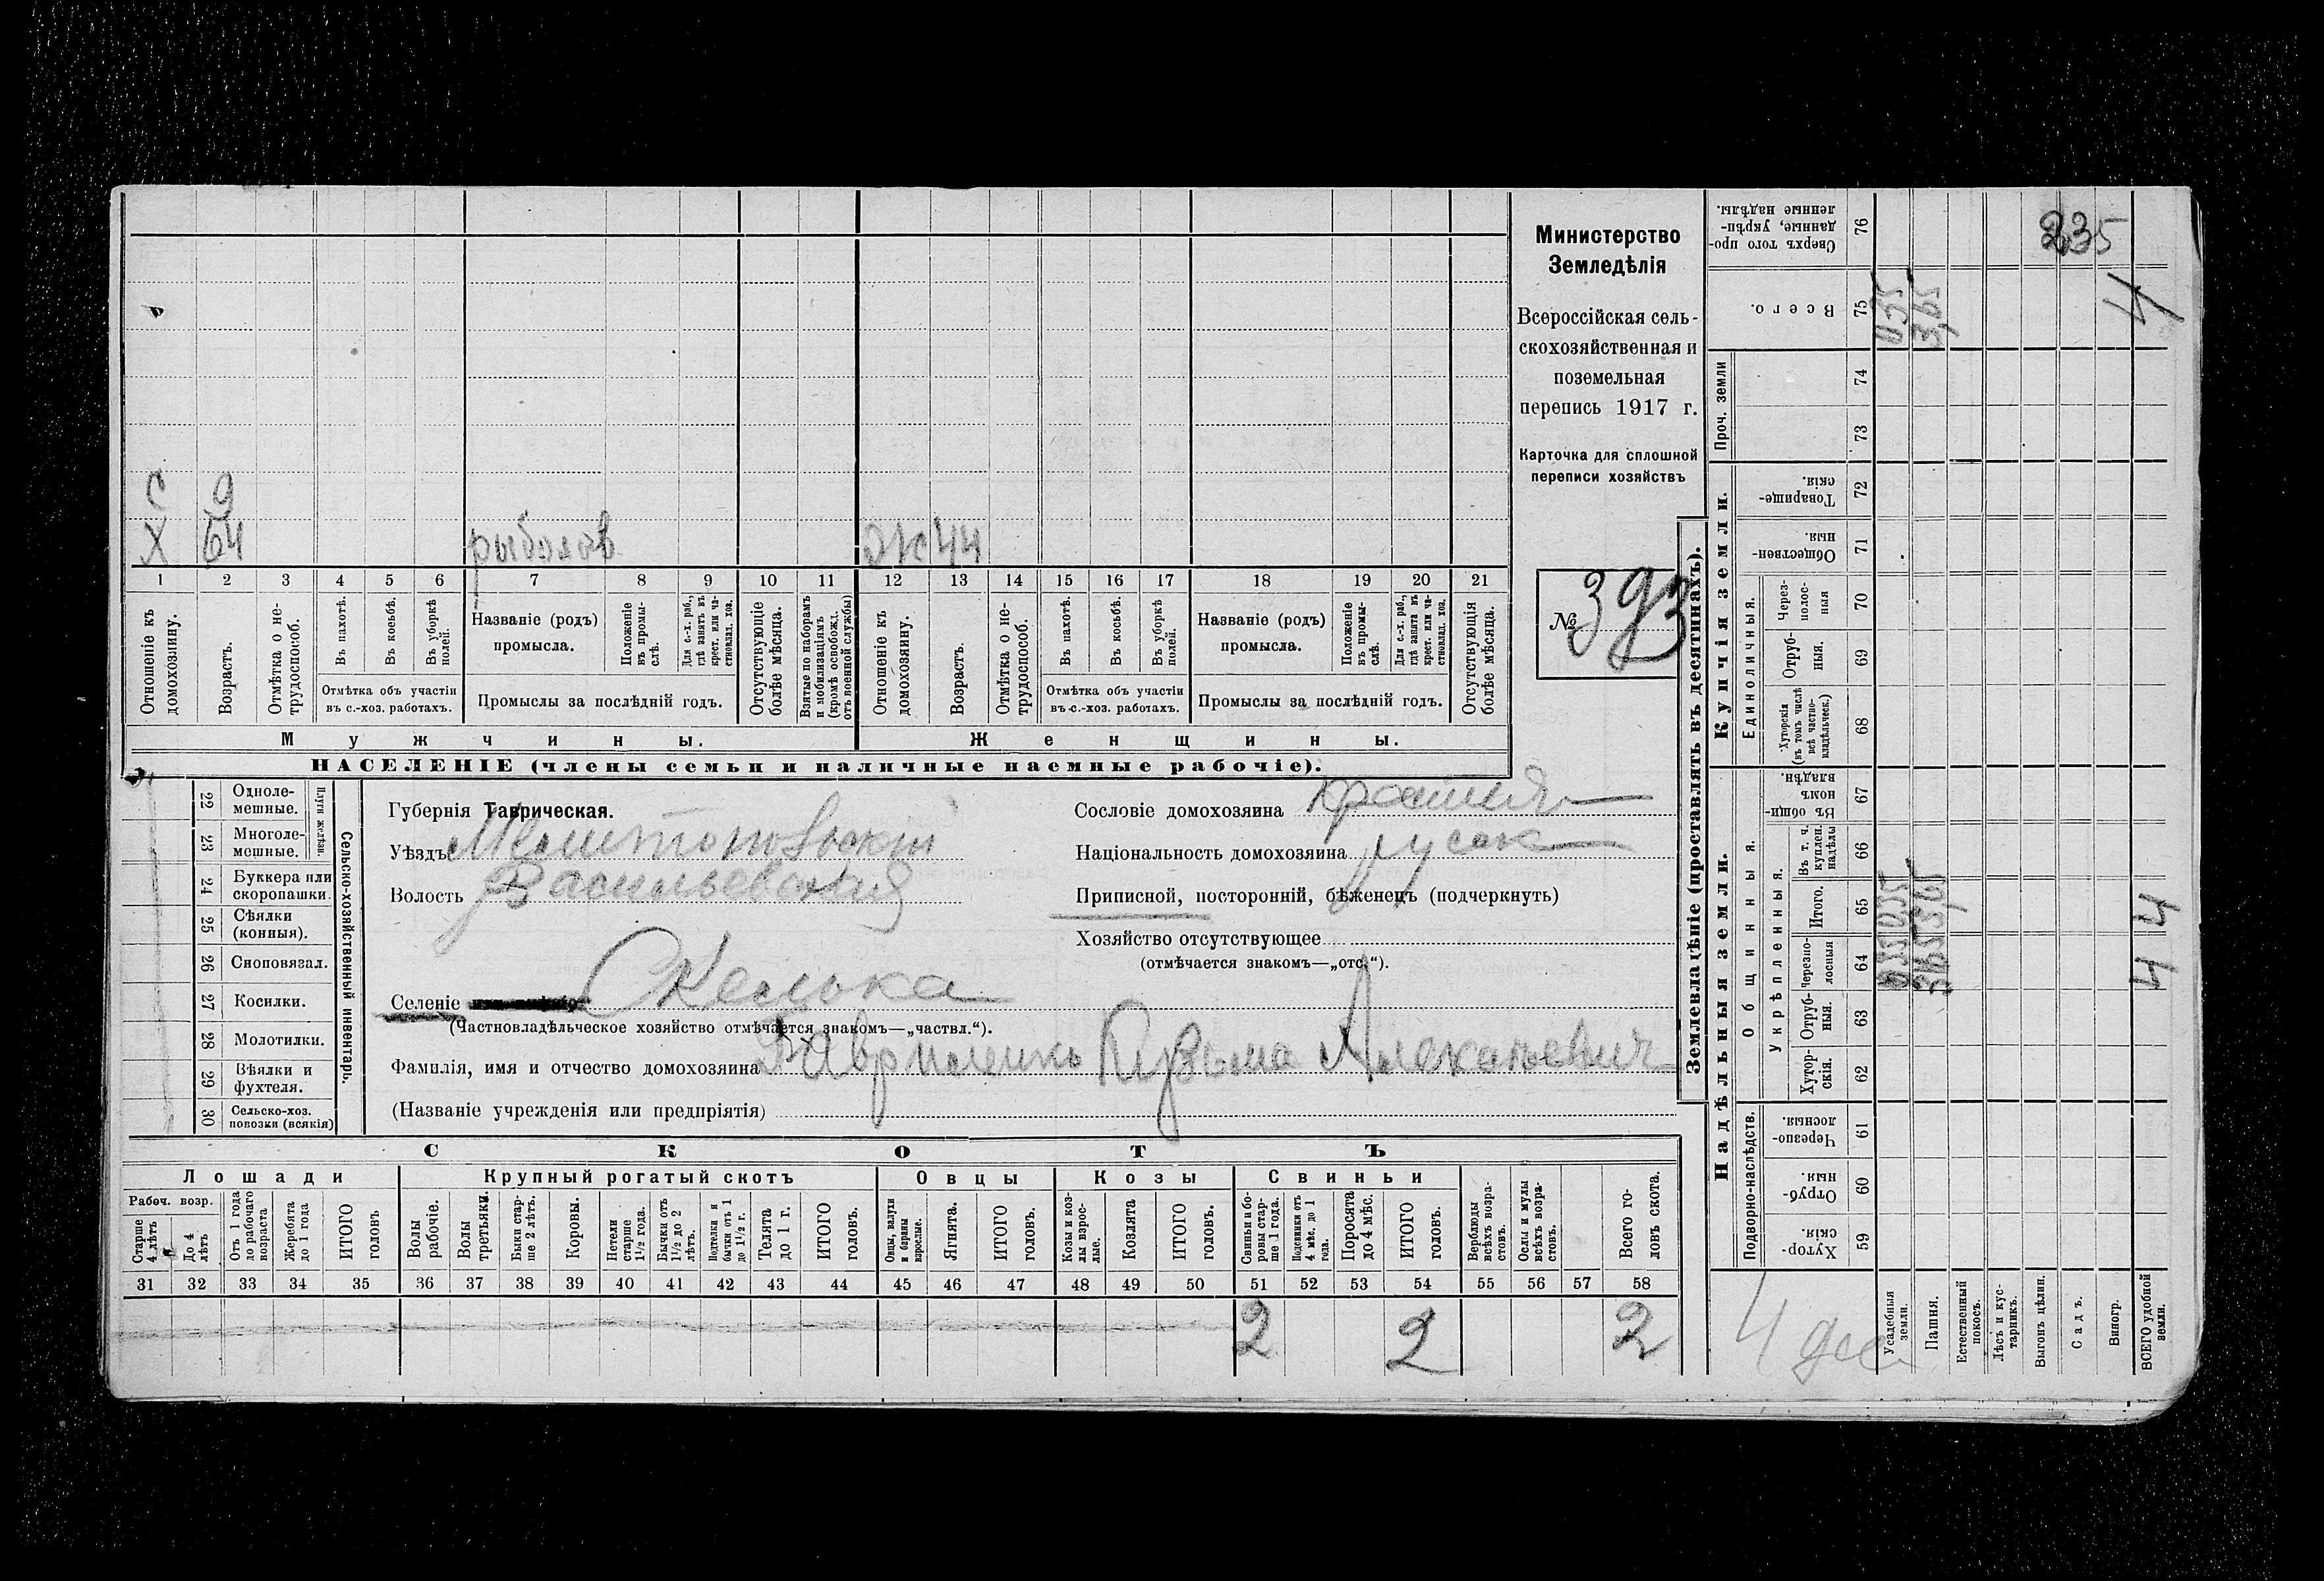 С 9
Х 64 рыболов Ж 44
1 2 3 4 5 6 7 8 9 10 11 12 13 14 15 16 17 18 19 20 21
Отношеніе къ домохозяину.
Возрастъ.
Отмѣтка о нетрудоспособ.
Въ пахотѣ.
Въ косьбѣ.
Въ уборкѣ полей.
Отмѣтка объ участіи
въ с.-хоз. работахъ.
Названіе (родъ)
промысла.
Положеніе въ промыслѣ.
Для с.-х. раб., гдѣ занятъ въ крест. или частновлад. хоз.
Промыслы за послѣдній годъ.
Отсутствующіе болѣе мѣсяца.
Взятые по наборамъ и мобилизаціямъ (кромѣ освобожд. отъ военной службы)
Отношеніе къ домохозяину.
Возрастъ.
Отмѣтка о нетрудоспособ.
Въ пахотѣ.
Въ косьбѣ.
Въ уборкѣ полей.
Отмѣтка объ участіи
въ с.-хоз. работахъ.
Названіе (родъ)
промысла.
Положеніе въ промыслѣ.
Для с.-х. раб., гдѣ занята въ крест. или частновлад. хоз.
Промыслы за послѣдній годъ.
Отсутствующія болѣе мѣсяца.
Мужчины. Женщины.
НАСЕЛЕНІЕ (члены семьи и наличные наемные рабочіе).
Министерство
Земледѣлія
Всероссійская сель-
скохозяйственная и
поземельная
перепись 1917 г.
Карточка для сплошной
переписи хозяйствъ
№ 393
22 Одноле-
мешные.
23 Многоле-
мешные.
Плуги желѣзн.
24 Буккера или
скоропашки.
25 Сѣялки
(конныя).
26 Сноповязал.
27 Косилки.
28 Молотилки.
29 Вѣялки и
фухтеля.
30 Сельско-хоз.
повозки (всякія)
Сельско-хозяйственный инвентарь.
Губернія Таврическая.
Уѣздъ Мелитопольскій
Волость Васильевская
Селеніе Скелька
(Частновладѣльческое хозяйство отмѣчается знакомъ—„частвл.“).
Фамилія, имя и отчество домохозяина Гавриленко Кузьма
(Названіе учрежденія или предпріятія)
Сословіе домохозяина
Національность домохозяина русск
Приписной, посторонній, бѣженецъ (подчеркнуть)
Хозяйство отсутствующее
(отмѣчается знакомъ—„отс.“).
СКОТЪ
Лошади Крупный рогатый скотъ Овцы Козы Свиньи
Рабоч. возр.
Старше 4 лѣтъ
До 4 лѣтъ
Отъ 1 года до рабочаго возраста
Жеребята до 1 года
ИТОГО головъ
Волы рабочіе.
Волы третьяки.
Быки старше 2 лѣтъ.
Коровы.
Нетели старше 1½ года.
Бычки отъ 1½ до 2 лѣтъ.
Подтелки и бычки отъ 1 до 1½ г.
Телята до 1 г.
ИТОГО головъ.
Овцы, валухи и бараны взрослые.
Ягнята.
ИТОГО головъ.
Козы и козлы взрослые.
Козлята
ИТОГО головъ.
Свиньи и боровы старше 1 года.
Подсвинки отъ 4 мѣс. до 1 года.
Поросята до 4 мѣс.
ИТОГО головъ.
Верблюды всѣхъ возрастовъ.
Ослы и мулы всѣхъ возрастовъ.
Всего головъ скота.
31 32 33 34 35 36 37 38 39 40 41 42 43 44 45 46 47 48 49 50 51 52 53 54 55 56 57 58
2 2 2
Землевладѣніе (проставлять въ десятинахъ).
Надѣльныя земли. Купчія земли.
Подворно-наслѣдств.
Общинныя.
Укрѣпленныя.
Единоличныя.
Проч. земли
Хуторскія. 59
Отрубныя. 60
Черезполосныя. 61
Хуторскія. 62
Отрубныя. 63
Черезполосныя 64
Итого. 65
Въ т. ч. куплен. надѣлы 66
Въ общинномъ владѣн. 67
Хуторскія (въ томъ числѣ всѣ частновладѣльческ.) 68
Отрубныя. 69
Через-полосныя 70
Общественныя. 71
Товарищескія. 72
73
74
Всего. 75
Сверхъ того проданные, укрѣпленные надѣлы. 76
Усадебныя земли. 0,35
Пашня. 3,65 3,65
Естественный покосъ.
Лѣсъ и кустарникъ.
Выгонъ цѣлин.
Садъ.
Виногр.
ВСЕГО удобной земли. 4 4 4
235
4 дес